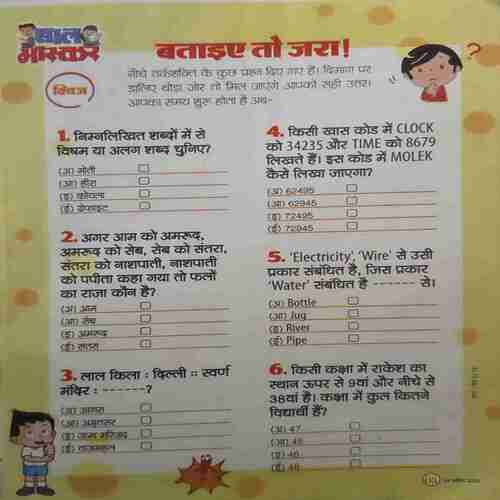 बाल
भास्कर
बताइए तो जरा!
क्विज
नीचे तर्कशक्ति के कुछ प्रश्न दिए गए हैं। दिमाग पर
डालिए थोड़ा जोर तो मिल जाएंगे आपको सही उत्तर।
आपका समय शुरू होता है अब-
1. निम्नलिखित शब्दों में से
विषम या अलग शब्द चुनिए?
(अ) मोती
(आ) हीरा
(इ) कोयला
(ई) ग्रेफाइट
2. अगर आम को अमरूद,
अमरूद को सेब, सेब को संतरा,
संतरा को नाशपाती, नाशपाती
को पपीता कहा गया तो फलों
का राजा कौन है?
(अ) आम
(आ) सेब
(इ) अमरूद
(ई) संतरा
3. लाल किला : दिल्ली :: स्वर्ण
मंदिर : ------?
(अ) आगरा
(आ) अमृतसर
(इ) जामा मस्जिद
(ई) ताजमहल
4. किसी खास कोड में CLOCK
को 34235 और TIME को 8679
लिखते हैं। इस कोड में MOLEK
कैसे लिखा जाएगा?
(अ) 62495
(आ) 62945
(इ) 72495
(ई) 72945
5. 'Electricity', 'Wire' से उसी
प्रकार संबंधित है, जिस प्रकार
'Water' संबंधित है ------ से।
(अ) Bottle
(आ) Jug
(इ) River
(ई) Pipe
6. किसी कक्षा में राकेश का
स्थान ऊपर से 9वां और नीचे से
38वां है। कक्षा में कुल कितने
विद्यार्थी हैं?
(अ) 47
(आ) 45
(इ) 46
(ई) 48